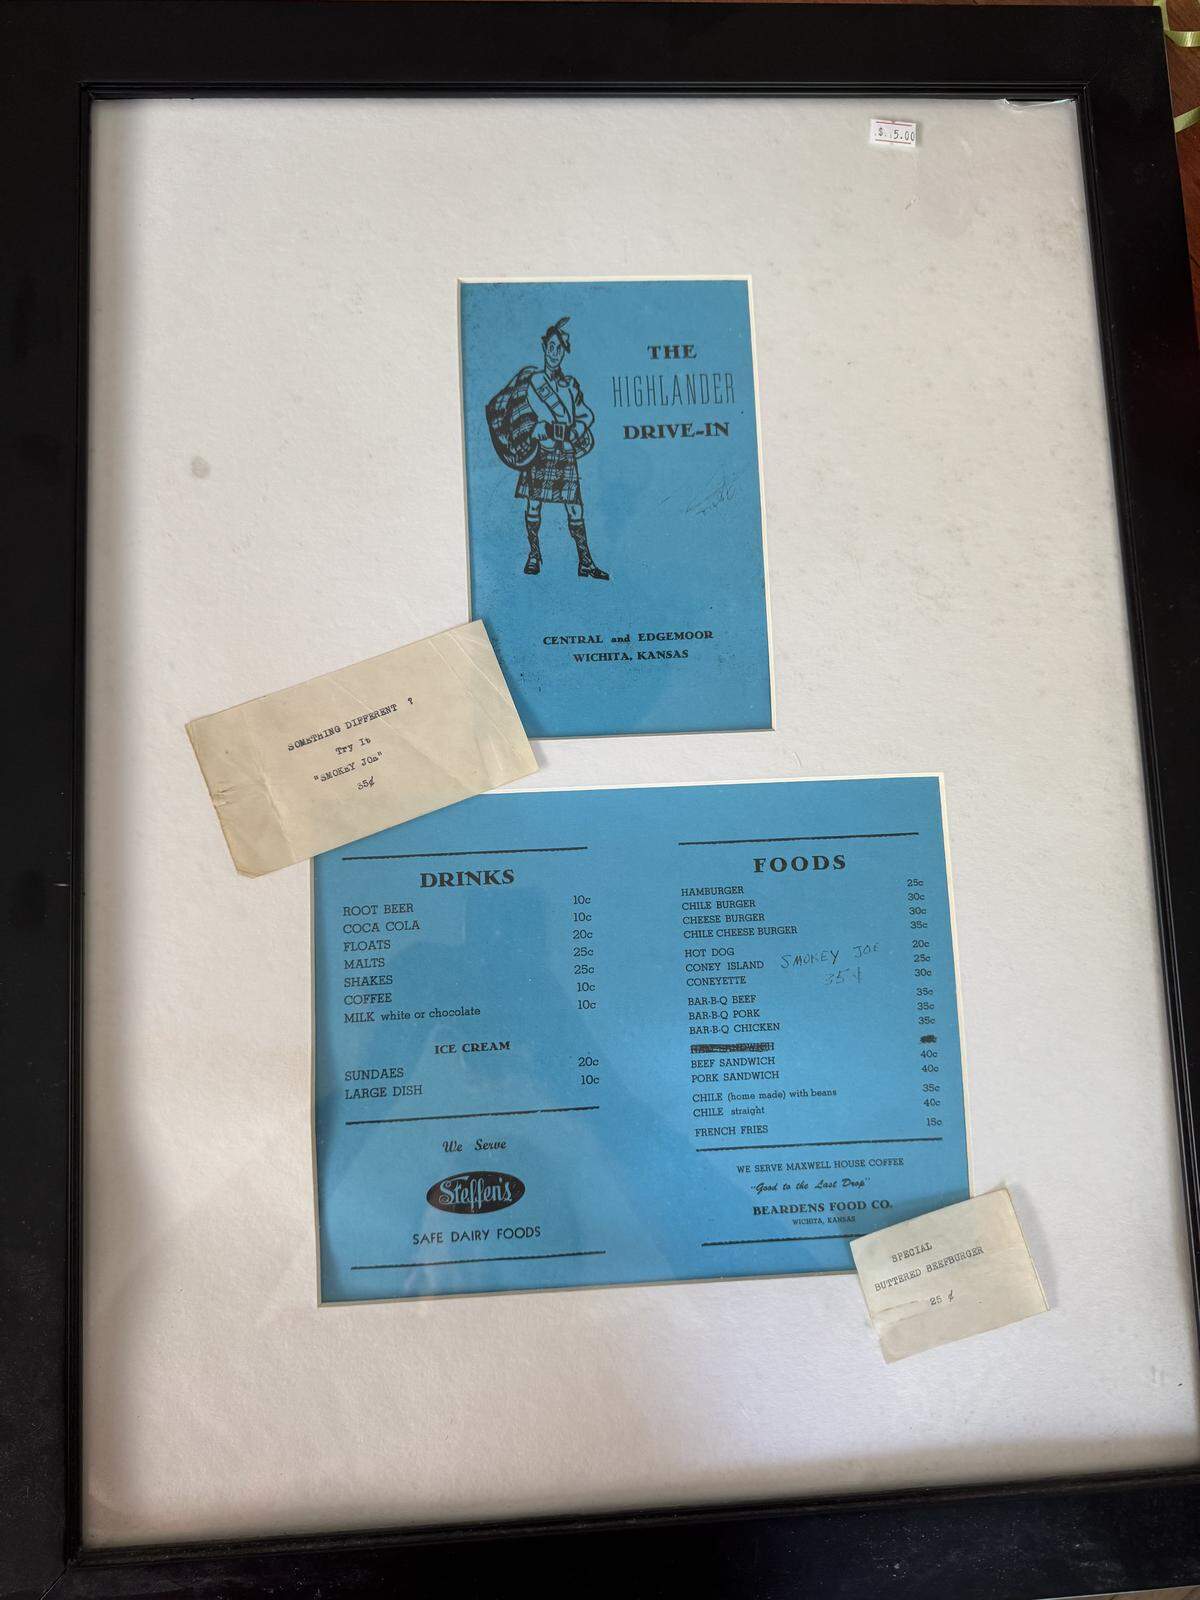 THE
HIGHLANDER
DRIVE-IN
CENTRAL and EDGEMOOR
WICHITA, KANSAS
SOMETHING DIFFERENT ?
Try It
"SMOKEY JOe"
35¢
DRINKS
ROOT BEER 10c
COCA COLA 10c
FLOATS 20c
MALTS 25c
SHAKES 25c
COFFEE 10c
MILK white or chocolate 10c
ICE CREAM
SUNDAES 20c
LARGE DISH 10c
We Serve
Steffen's
SAFE DAIRY FOODS
FOODS
HAMBURGER 25c
CHILE BURGER 30c
CHEESE BURGER 30c
CHILE CHEESE BURGER 35c
HOT DOG 20c
CONEY ISLAND 25c
CONEYETTE 30c
SMOKEY JOE
35¢
BAR-B-Q BEEF 35c
BAR-B-Q PORK 35c
BAR-B-Q CHICKEN 35c
BEEF SANDWICH 40c
PORK SANDWICH 40c
CHILE (home made) with beans 35c
CHILE straight 40c
FRENCH FRIES 15c
WE SERVE MAXWELL HOUSE COFFEE
"Good to the Last Drop"
BEARDENS FOOD CO.
WICHITA, KANSAS
SPECIAL
BUTTERED BEEFBURGER
25 ¢